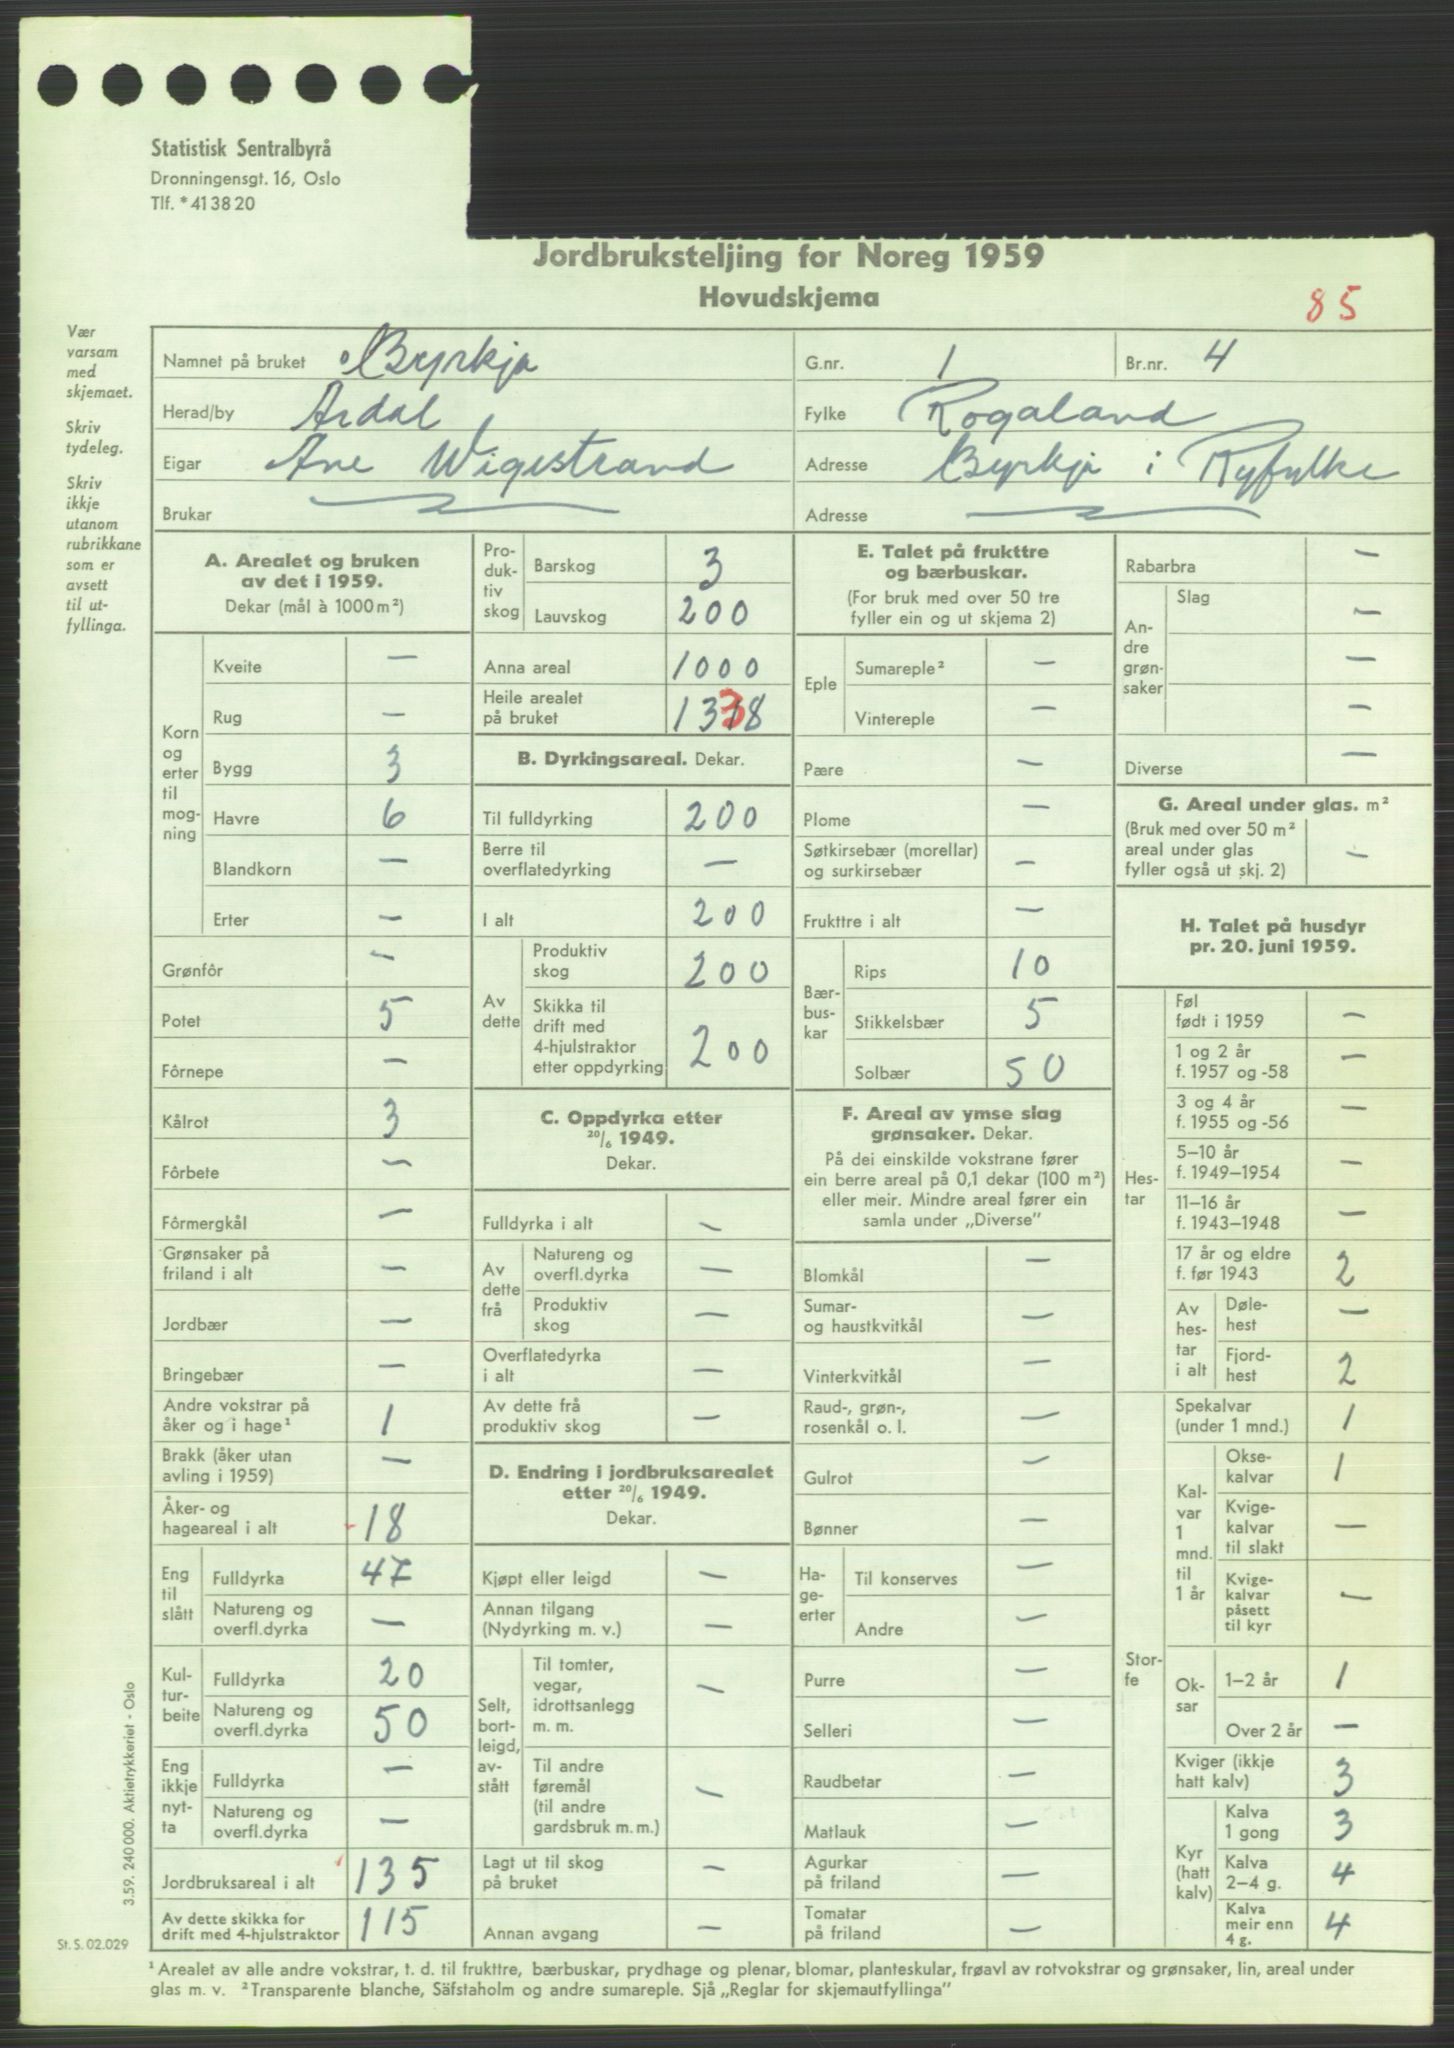 Statistisk Sentralbyrå
Dronningensgt. 16, Oslo
Tlf. *41 38 20
Jordbruksteljing for Noreg 1959
Hovudskjema
85
Vær
varsam
med
skjemaet.
Skriv
tydeleg.
Skriv
ikkje
utanom
rubrikkane
som er
avsett
til ut-
fyllinga.
Namnet på bruket Byrkja G.nr. 1 Br.nr. 4
Herad/by Årdal Fylke Rogaland
Eigar Ane Wigestrand Adresse Byrkja i Ryfylke
Brukar Adresse
A. Arealet og bruken
av det i 1959.
Dekar (mål à 1000 m²)
Korn
og
erter
til
mog-
ning
Kveite —
Rug —
Bygg 3
Havre 6
Blandkorn —
Erter —
Grønfôr —
Potet 5
Fôrnepe —
Kålrot 3
Fôrbete —
Fôrmergkål —
Grønsaker på
friland i alt —
Jordbær —
Bringebær —
Andre vokstrar på
åker og i hage¹ 1
Brakk (åker utan
avling i 1959) —
Åker- og
hageareal i alt 18
Eng
til
slått
Fulldyrka 47
Natureng og
overfl.dyrka —
Kul-
tur-
beite
Fulldyrka 20
Natureng og
overfl.dyrka 50
Eng
ikkje
nyt-
ta
Fulldyrka —
Natureng og
overfl.dyrka —
Jordbruksareal i alt 135
Av dette skikka for
drift med 4-hjulstraktor 115
Pro-
duk-
tiv
skog
Barskog 3
Lauvskog 200
Anna areal 1000
Heile arealet
på bruket 1338
B. Dyrkingsareal. Dekar.
Til fulldyrking 200
Berre til
overflatedyrking —
I alt 200
Av
dette
Produktiv
skog 200
Skikka til
drift med
4-hjulstraktor
etter oppdyrking 200
C. Oppdyrka etter
20/6 1949.
Dekar.
Fulldyrka i alt —
Av
dette
frå
Natureng og
overfl.dyrka —
Produktiv
skog —
Overflatedyrka
i alt —
Av dette frå
produktiv skog —
D. Endring i jordbruksarealet
etter 20/6 1949.
Dekar.
Kjøpt eller leigd —
Annan tilgang
(Nydyrking m. v.) —
Selt,
bort-
leigd,
av-
stått
Til tomter,
vegar,
idrottsanlegg
m. m. —
Til andre
føremål
(til andre
gardsbruk m. m.) —
Lagt ut til skog
på bruket —
Annan avgang —
E. Talet på frukttre
og bærbuskar.
(For bruk med over 50 tre
fyller ein og ut skjema 2)
Eple
Sumareple² —
Vintereple —
Pære —
Plome —
Søtkirsebær (morellar)
og surkirsebær —
Frukttre i alt —
Bær-
bus-
kar
Rips 10
Stikkelsbær 5
Solbær 50
F. Areal av ymse slag
grønsaker. Dekar.
På dei einskilde vokstrane fører
ein berre areal på 0,1 dekar (100 m²)
eller meir. Mindre areal fører ein
samla under „Diverse”
Blomkål —
Sumar-
og haustkvitkål —
Vinterkvitkål —
Raud-, grøn-,
rosenkål o. l. —
Gulrot —
Bønner —
Ha-
ge-
erter
Til konserves —
Andre —
Purre —
Selleri —
Raudbetar —
Matlauk —
Agurkar
på friland —
Tomatar
på friland —
Rabarbra —
An-
dre
grøn-
saker
Slag
—
—
—
Diverse —
G. Areal under glas. m²
(Bruk med over 50 m²
areal under glas
fyller også ut skj. 2) —
H. Talet på husdyr
pr. 20. juni 1959.
Hes-
tar
Føl
født i 1959 —
1 og 2 år
f. 1957 og -58 —
3 og 4 år
f. 1955 og -56 —
5–10 år
f. 1949–1954 —
11–16 år
f. 1943–1948 —
17 år og eldre
f. før 1943 2
Av
hes-
tar
i alt
Døle-
hest —
Fjord-
hest 2
Stor-
fe
Spekalvar
(under 1 mnd.) 1
Kal-
var
1
mnd.
til
1 år
Okse-
kalvar 1
Kvige-
kalvar
til slakt —
Kvige-
kalvar
påsett
til kyr —
Ok-
sar
1–2 år 1
Over 2 år —
Kviger (ikkje
hatt kalv) 3
Kyr
(hatt
kalv)
Kalva
1 gong 3
Kalva
2–4 g. 4
Kalva
meir enn
4 g. 4
3.59. 240 000. Aktietrykkeriet - Oslo
St. S. 02.029
¹ Arealet av alle andre vokstrar, t. d. til frukttre, bærbuskar, prydhage og plenar, blomar, planteskular, frøavl av rotvokstrar og grønsaker, lin, areal under
glas m. v. ² Transparente blanche, Säfstaholm og andre sumareple. Sjå „Reglar for skjemautfyllinga”